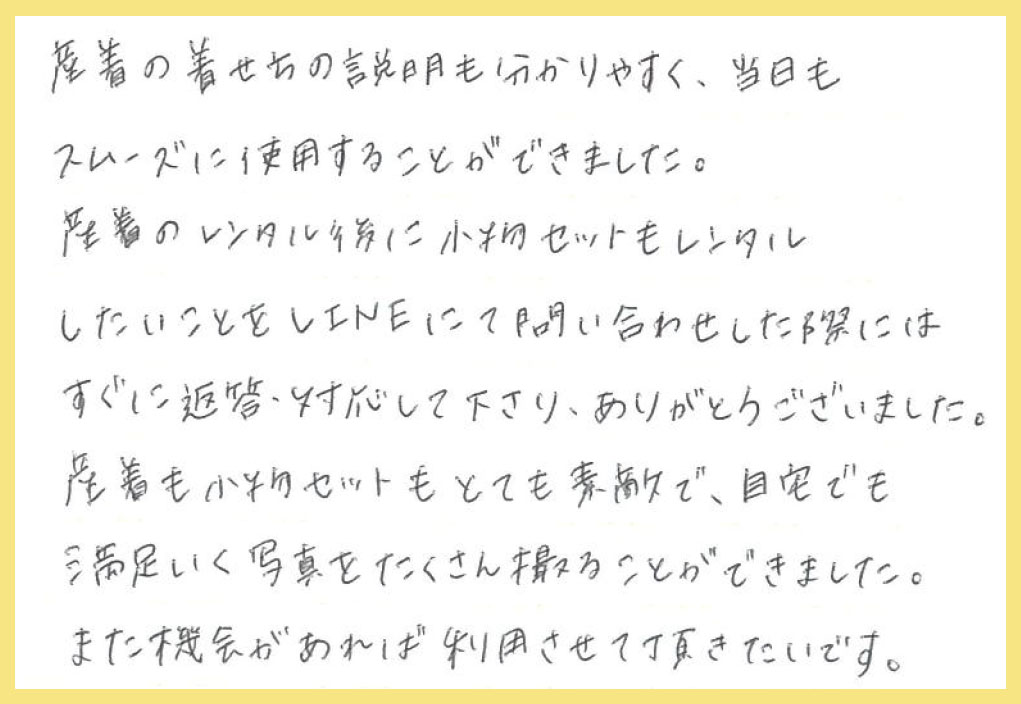 産着の着せ方の説明も分かりやすく、当日も
スムーズに使用することができました。
産着のレンタル後に小物セットもレンタル
したいことをLINEにて問い合わせした際には
すぐに返答・対応して下さり、ありがとうございました。
産着も小物セットもとても素敵で、自宅でも
満足いく写真をたくさん撮ることができました。
また機会があれば利用させて頂きたいです。